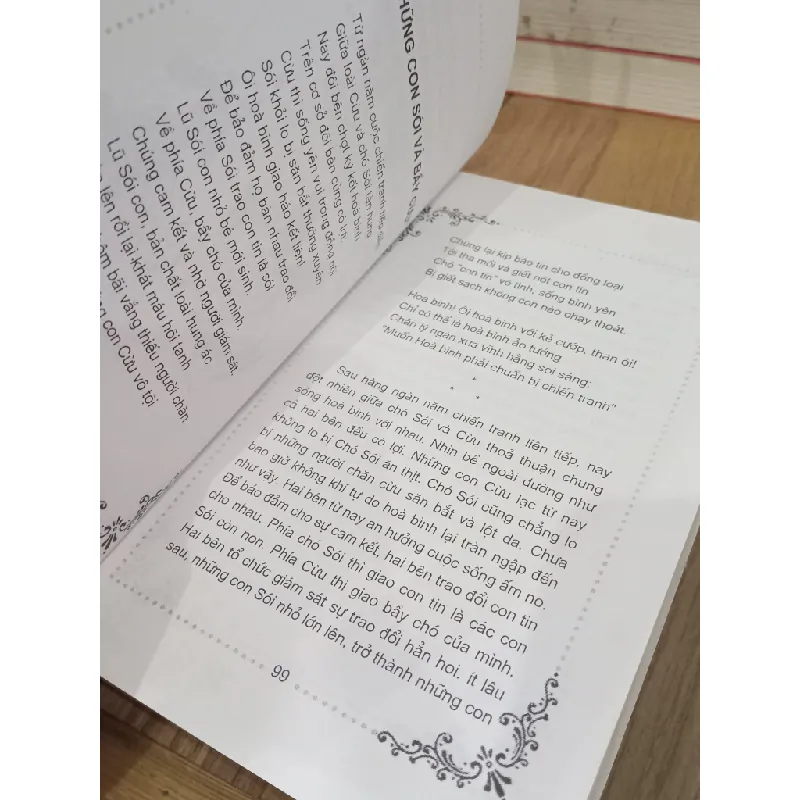 HỮNG CON SÓI VÀ BẦY
Từ ngàn năm cuộc chiến tranh
Giữa loài Cừu và chó Sói tàn hung
Nay đôi bên chợt ký kết hoà bình
Trên cơ sở đôi bên cùng có lợi
Cừu thì sống yên vui trong đồng nội
Sói khỏi lo bị săn bắt thường xuyên
Ôi hoà bình giao hảo kết liên!
Để bảo đảm họ bàn nhau trao đổi
Về phía Sói trao con tin là sói
Lũ Sói con nhỏ bé mới sinh
Về phía Cừu, bầy chó của mình
Chúng cam kết và nhờ người giám sát.
Sói con, bản chất loài hung ác,
lên rồi lại khát máu hôi tanh
bãi vắng thiếu người chăn
con Cừu vô tội
Chúng lại kịp báo tin cho đồng loại
Tới tha mồi và giết nốt con tin
Chó "con tin" vô tình, sống bình yên
Bị giết sạch không con nào chạy thoát.
Hoà bình! Ôi hoà bình với kẻ cướp, than ôi!
Chỉ có thể là hoà bình ảo tưởng
Chân lý ngàn xưa vĩnh hằng soi sáng:
"Muốn Hoà bình phải chuẩn bị chiến tranh"
*
* *
Sau hàng ngàn năm chiến tranh liên tiếp, nay
đột nhiên giữa chó Sói và Cừu thoả thuận chung
sống hoà bình với nhau. Nhìn bề ngoài dường như
cả hai bên đều có lợi. Những con Cừu lạc từ nay
không lo bị Chó Sói ăn thịt. Chó Sói cũng chẳng lo
bị những người chăn cừu săn bắt và lột da. Chưa
bao giờ không khí tự do hoà bình lại tràn ngập đến
như vậy. Hai bên từ nay an hưởng cuộc sống ấm no.
Để bảo đảm cho sự cam kết, hai bên trao đổi con tin
cho nhau. Phía chó Sói thì giao con tin là các con
Sói còn non. Phía Cừu thì giao bầy chó của mình.
Hai bên tổ chức giám sát sự trao đổi hẳn hoi, ít lâu
sau, những con Sói nhỏ lớn lên, trở thành những con
99